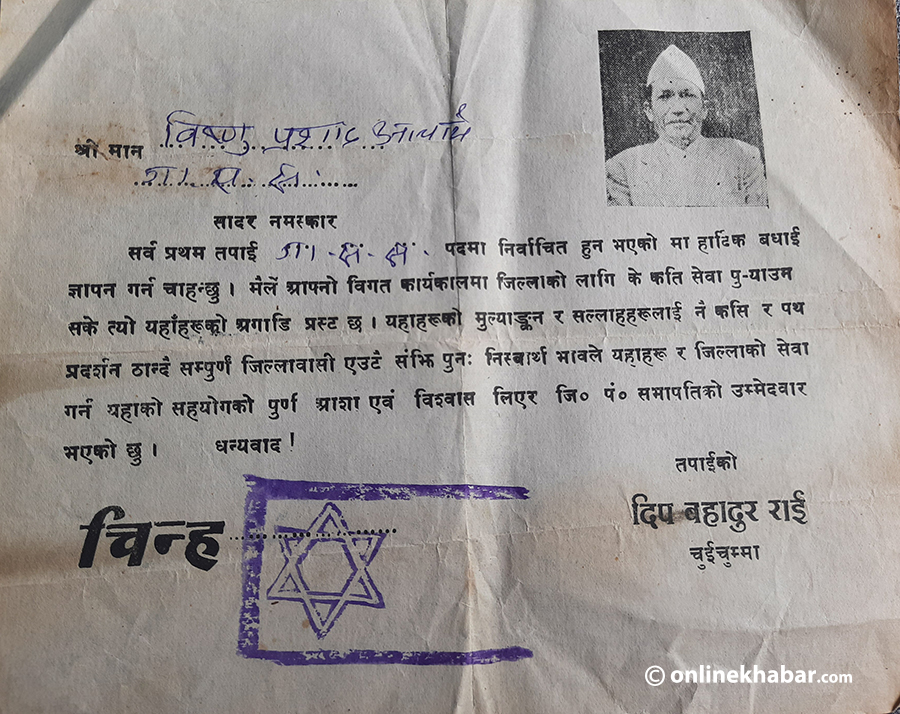 श्री मान विष्णु प्रशाद आचार्य
सादर नमस्कार
सर्व प्रथम तपाई पदमा निर्वाचित हुन भएको मा हार्दिक बधाई
ज्ञापन गर्न चाहन्छु । मैलें आपनो विगत कार्यकालमा जिल्लाको लागि के कति सेवा पु-याउम
सके त्यो यहाँहरूको अगाडि प्रस्ट छ । यहाहरूको मुल्याङ्कन र सल्लाहहरूलाई नै कसि र पथ
प्रदर्शन ठान्दै सम्पुर्ण जिल्लावासी एउटै संझि पुनः निस्वार्थ भावले यहाहरू र जिल्लाको सेवा
गर्न यहाको सहयोगको पुर्ण आशा एवं विश्वास लिएर जि० पं० सभापतिको उम्मेदवार
भएको छु । धन्यवाद !
तपाईको
दिप बहादुर राई
चुईचुम्मा
चिन्ह
© onlinekhabar.com